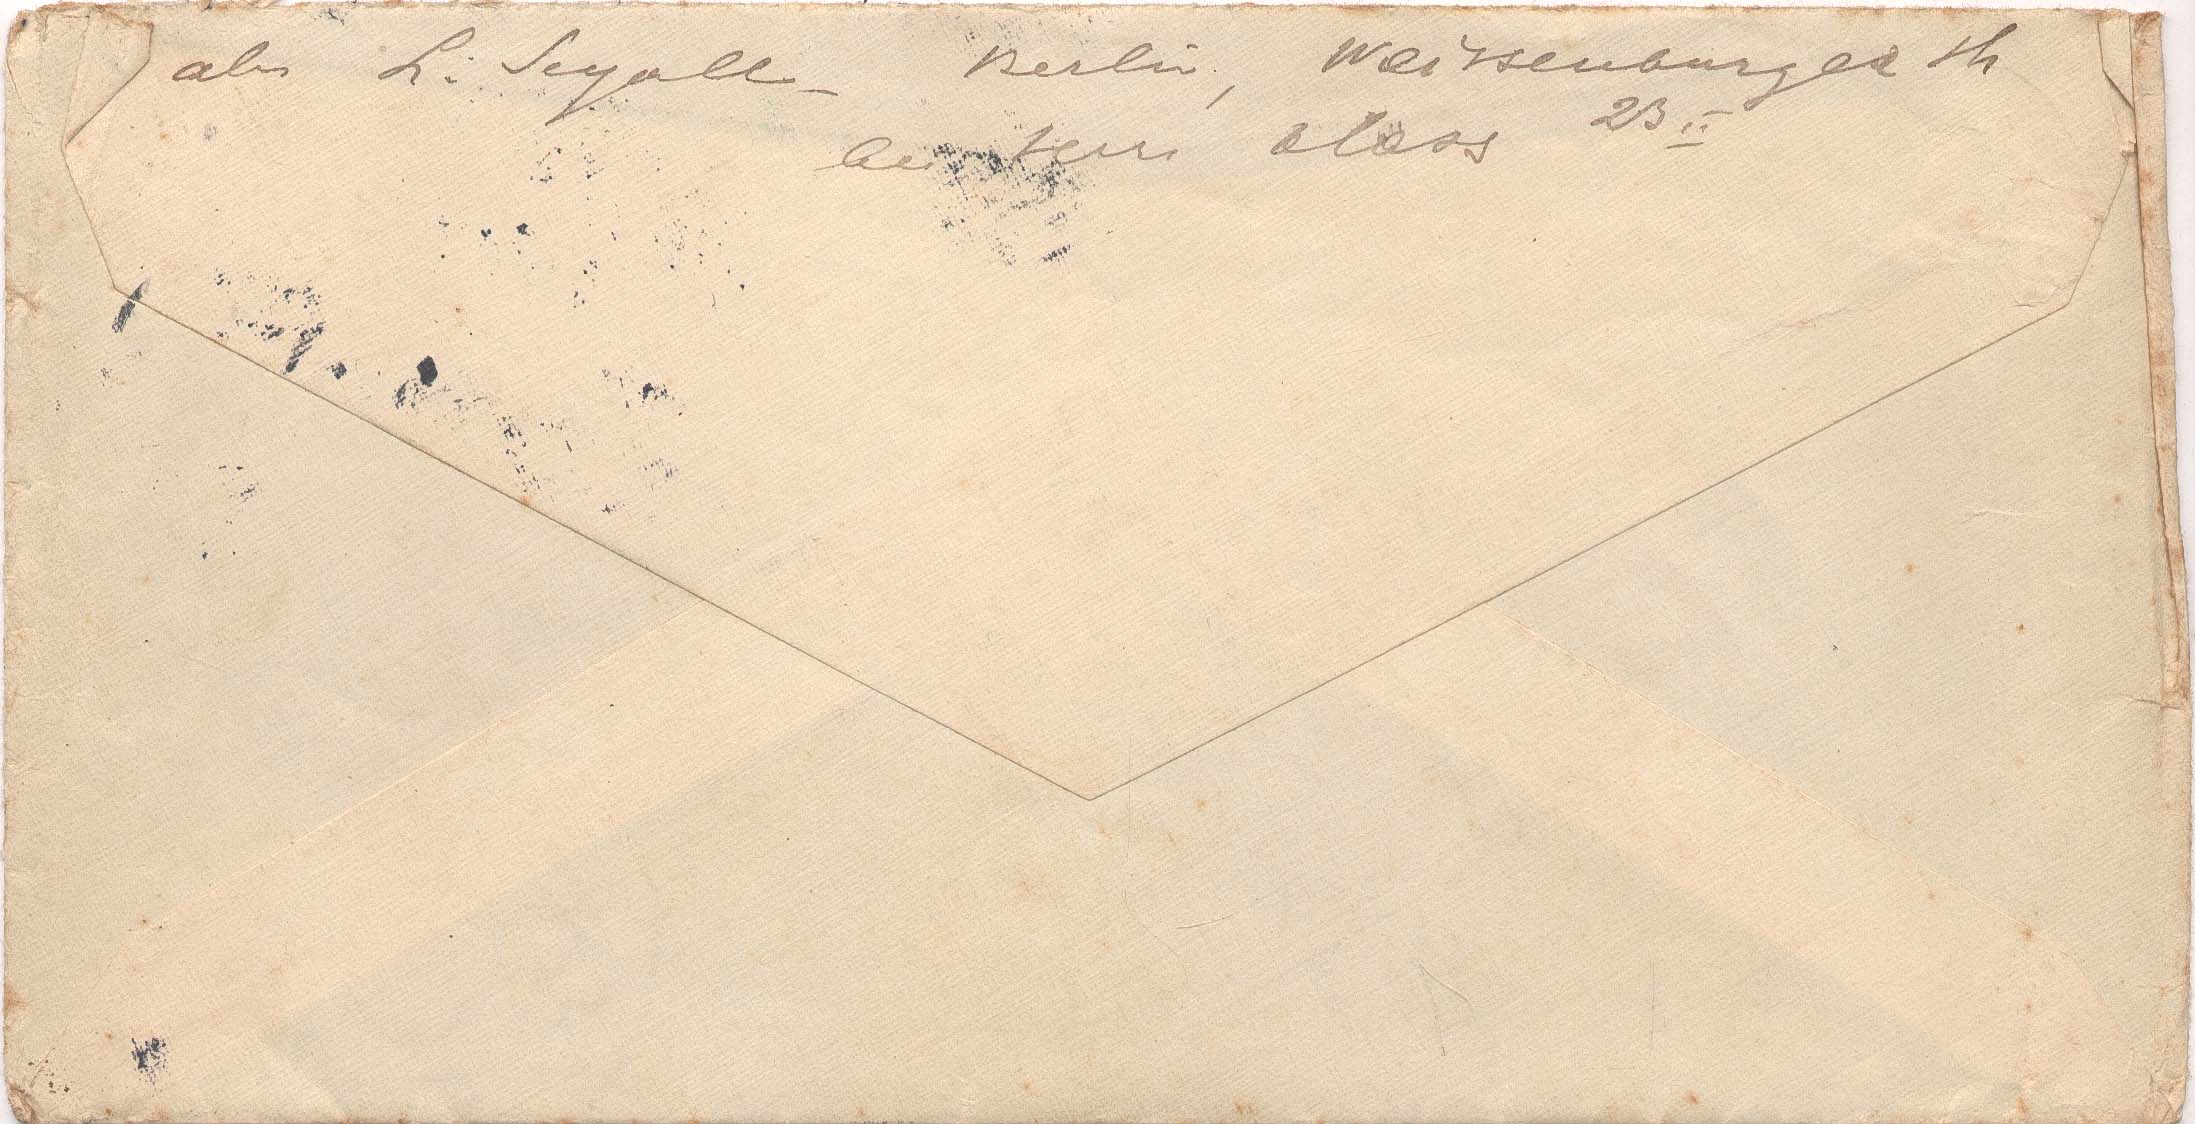 abs L. Segall Berlin, Weissenburger str
23 II
bei Herr